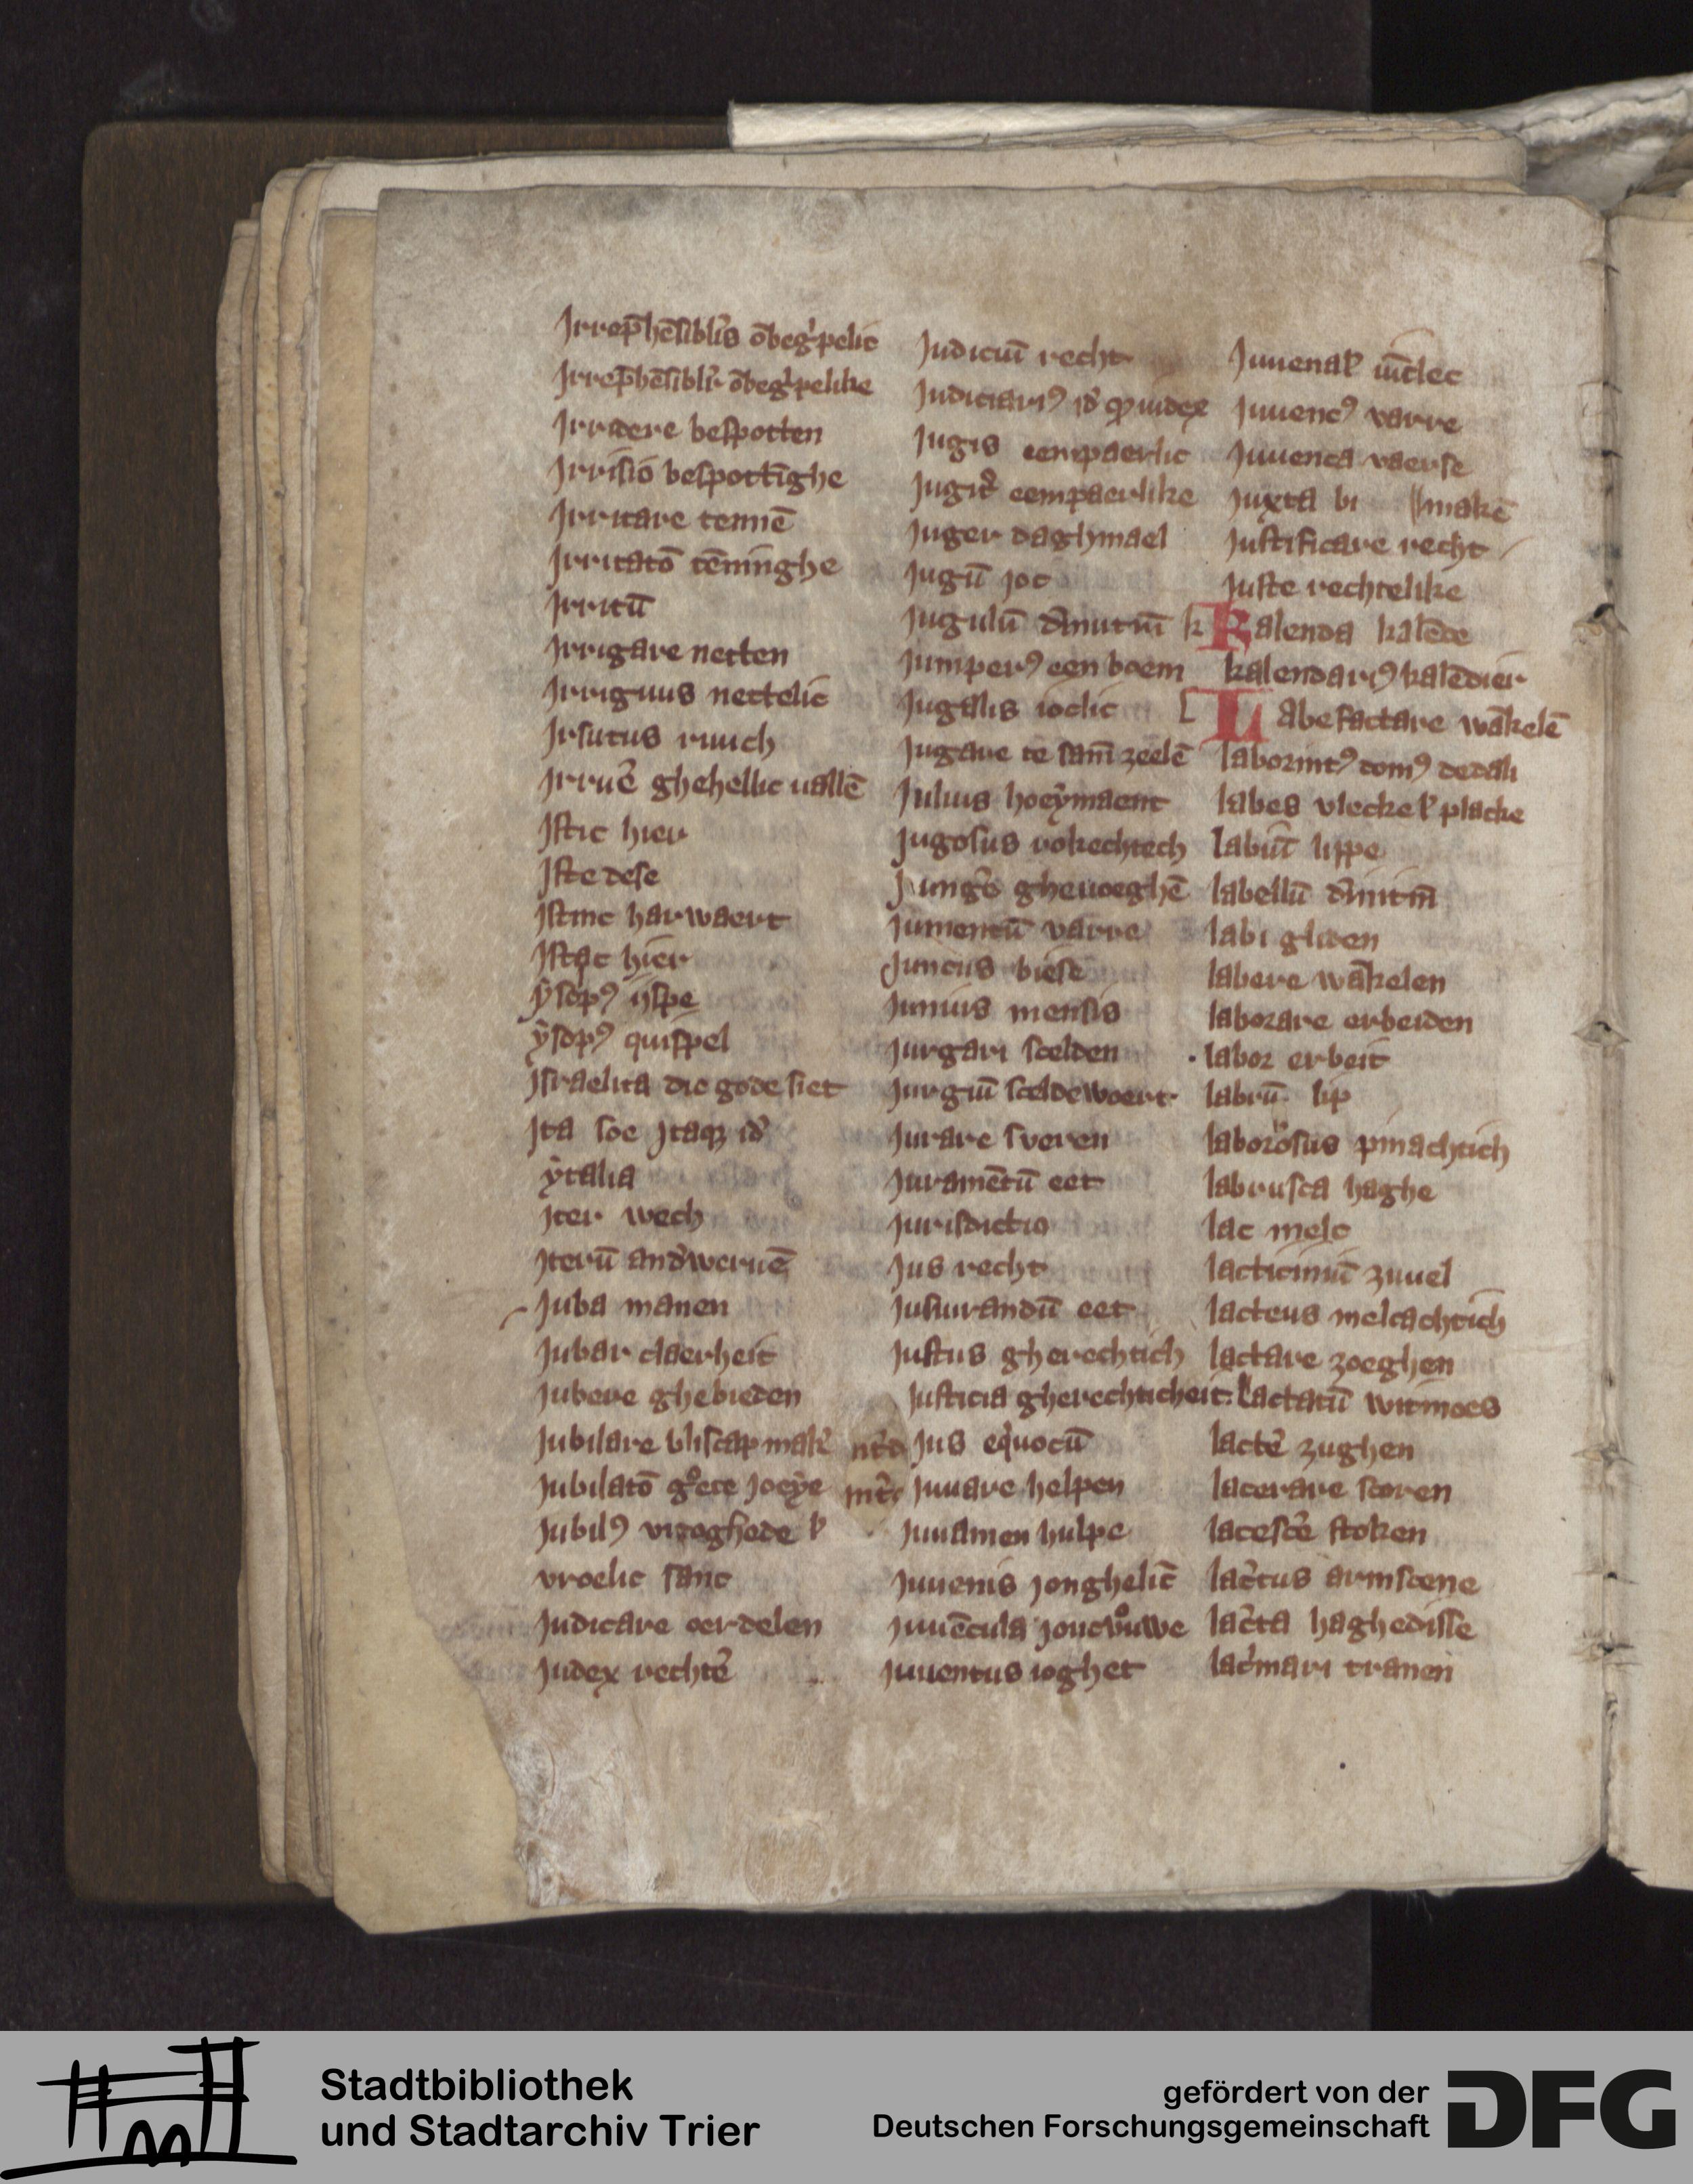 Irrep̄hēsiblis ōbegͥpelic
Irrep̄hēsiblr ōbegͥpelike
Irridere bespotten
Irrisio bespottīghe
Irritare tennē
Irritatō tēninghe
Irritū
Irrigare netten
Irriguus nettelic
Irsutus ruuch
Irrue͛ ghehellic uallē
Istic hier
Iste dese
Istinc harwaert
Istac hier
ẏsopꝰ ijspe
ẏsopꝰ quispel
Israelita die gode siet
Ita soe Itaqꝫ id͛
ẏtalia
Iter wech
Iterū and͛weruē
Iuba manen
Iubar claerheit
Iubere ghebieden
Iubilare bliscap mak͛
Iubilatō gͦete joeẏe
Iubilꝰ vroghede ł
vroelic sanc
Iudicare oerdelen
Iudex rechte͛
Iudiciū recht
Iudiciariꝰ id͛ qͩ iudex
Iugis eenpaerlic
Iugit͛ eenpaerlike
Iuger daghmael
Iugū joc
Iugulū d̄inutiū k
Iuniperꝰ een boem
Iugalis ioclic
Iugare te sam̄ zeelē
Iulius hoeẏmaent
Iugosus rokechtech
Iung͛e ghevoeghē
Iumentū varre
Iuncus biese
Iunius mensis
Iurgari scelden
Iurgiū sceldewoert
Iurare sveren
Iuramētū eet
Iurisdictio
Ius recht
Iusiurandū eet
Iustus gherechtich
Iusticia gherechticheit
Ius eq̇uocū
Iuuare helpen
Iuuamen hulpe
Iuuenis jonghelīc
Iuuēcula joncvͦuwe
Iuuentus ioghet
Iuuenał iūtlec
Iuuencꝰ varre
Iuuenca vaerse
Iuxta bi makē
Iustificare recht
Iuste rechtelike
Kalenda kalēde
kalendariꝰ kalēdier
Labefactare wākelē
laborintꝰ domꝰ dedali
labes vlecke ł placke
labiū lippe
labellū d̄initiū
labi gliden
labere wākelen
laborare erbeiden
labor erbeit
labrū lip
laborosus pinachtich
labrusca haghe
lac melc
lacticiniū zuuel
lacteus melcachtich
lactare zoeghen
lactatū witmoes
lacte͛ zughen
lacerare scoren
lacesce͛ stoken
lac͛tus armscene
lac͛ta haghedisse
lac͛mari tranen
Stadtbibliothek
und Stadtarchiv Trier
gefördert von der
Deutschen Forschungsgemeinschaft
DFG